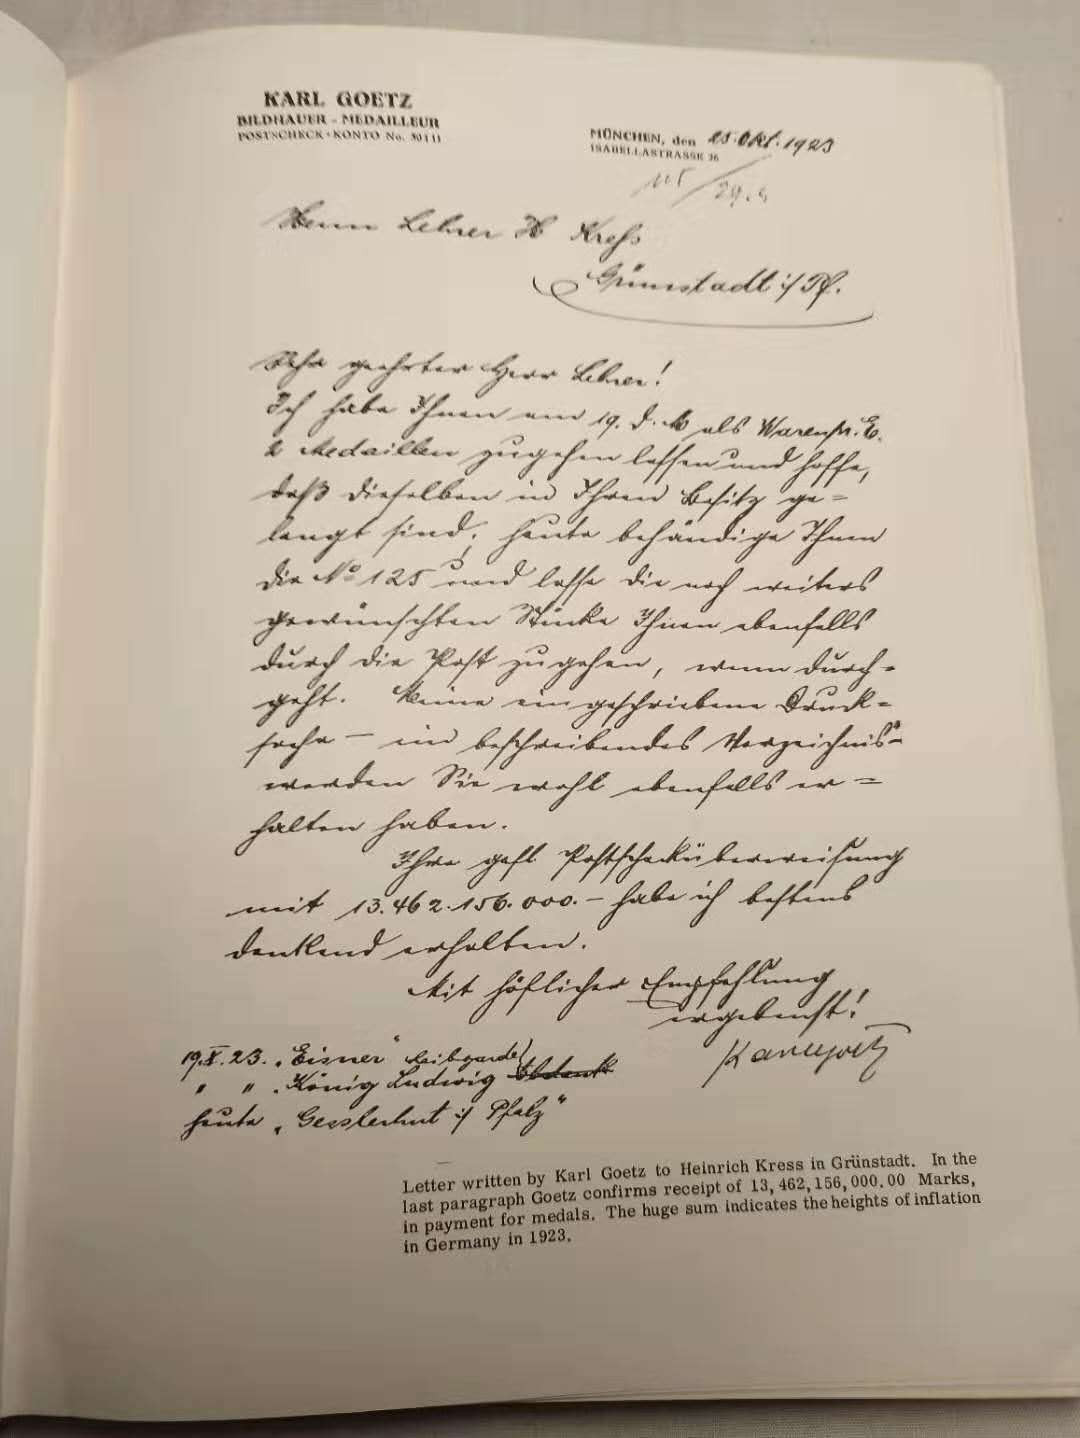 KARL GOETZ
BILDHAUER - MEDAILLEUR
POSTSCHECK-KONTO No. 30111
MÜNCHEN, den 25. Okt. 1923
ISABELLASTRASSE 26
29.
Herrn Lehrer H Kreß
Grünstadt i/Pf.
Sehr geehrter Herr Lehrer!
Ich habe Ihnen am 19. d. M als Warenpr. E.
2 Medaillen zugehen lassen und hoffe,
daß dieselben in Ihren Besitz ge=
langt sind; heute behändige Ihnen
die No 125 und lasse die noch weiters
gewünschten Stücke Ihnen ebenfalls
durch die Post zugehen, wenn durch-
geht. Meine eingeschriebene Druck=
sache – ein beschreibendes Verzeichnis-
werden Sie wohl ebenfalls er=
halten haben.
Ihre gefl Postschecküberweisung
mit 13.462.156.000.- habe ich bestens
dankend erhalten.
Mit höflicher Empfehlung
ergebenst!
Karl Goetz
19.X.23. „Eisner" Leibgarde
" " „König Ludwig
heute „Gesslerhut i/ Pfalz"
Letter written by Karl Goetz to Heinrich Kress in Grünstadt. In the
last paragraph Goetz confirms receipt of 13,462,156,000.00 Marks,
in payment for medals. The huge sum indicates the heights of inflation
in Germany in 1923.